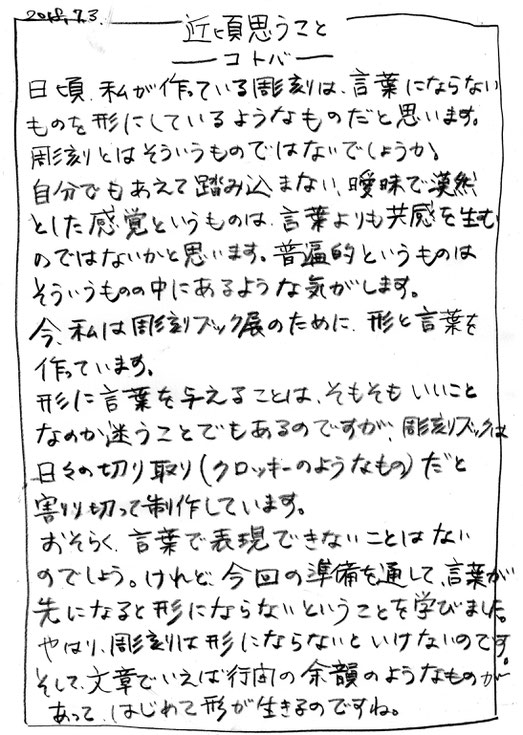 2018.7.3.
近頃思うこと
コトバ
日頃、私が作っている彫刻は、言葉にならない
ものを形にしているようなものだと思います。
彫刻とはそういうものではないでしょうか。
自分でもあえて踏み込まない、曖昧で漠然
とした感覚というものは、言葉よりも共感を生む
のではないかと思います。普遍的というものは
そういうものの中にあるような気がします。
今、私は彫刻ブック展のために、形と言葉を
作っています。
形に言葉を与えることは、そもそもいいこと
なのか迷うことでもあるのですが、彫刻ブックは
日々の切り取り(クロッキーのようなもの)だと
割り切って制作しています。
おそらく、言葉で表現できないことはない
のでしょう。けれど、今回の準備を通して、言葉が
先になると形にならないということを学びました。
やはり、彫刻は形にならないといけないのです。
そして、文章でいえば行間の余韻のようなものが
あって、はじめて形が生きるのですね。